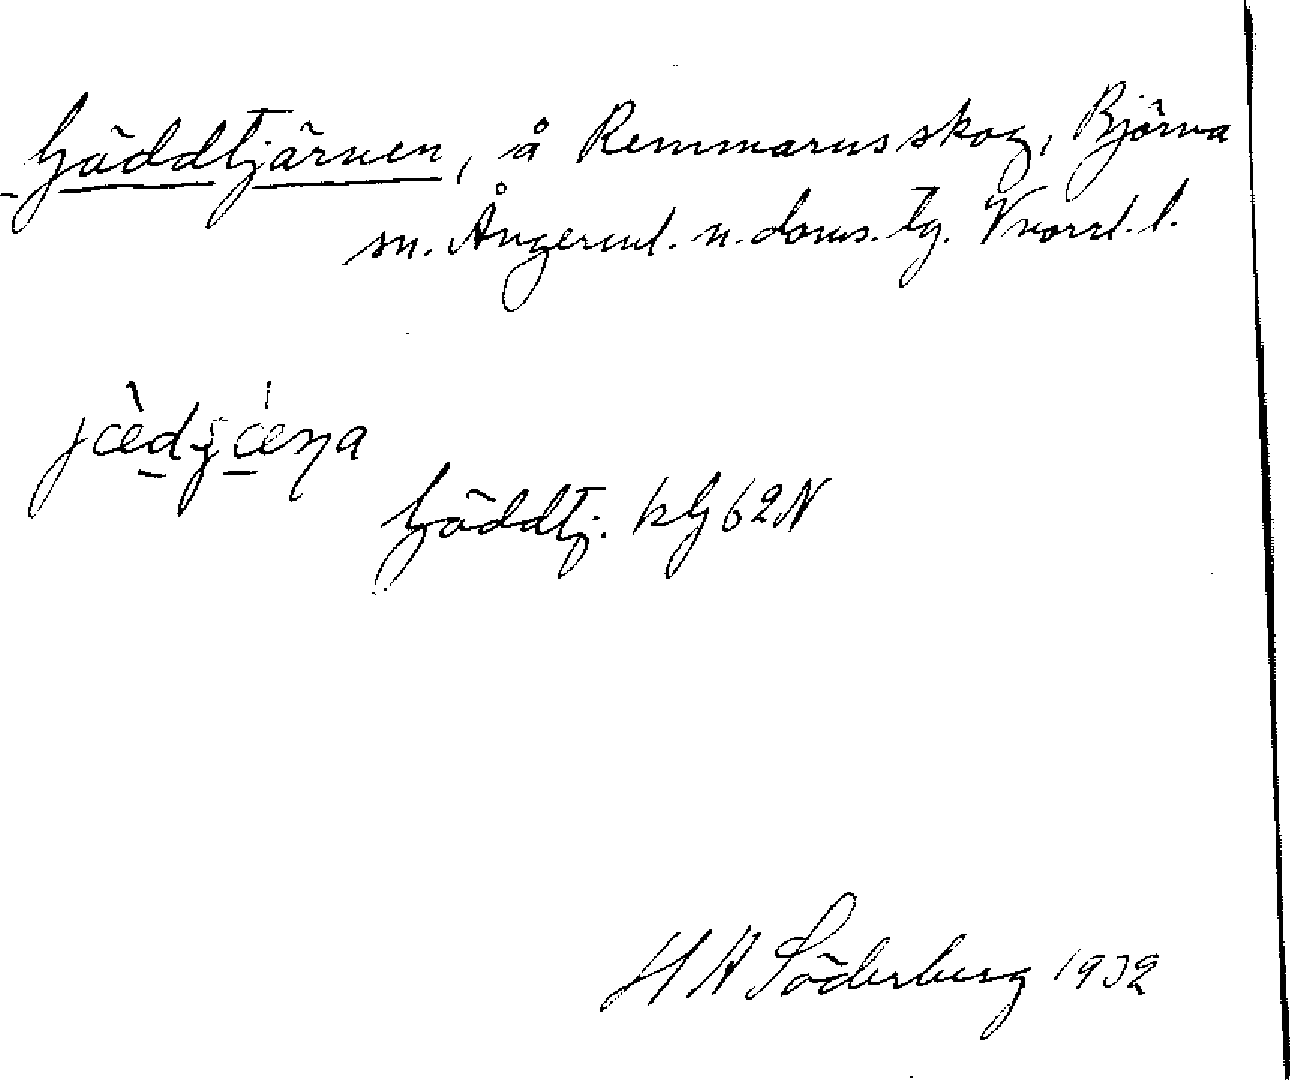 Gäddtjärnen, å Remmarns skog, Björna
sn. Ångerml. n. doms. tg. Vnorrl. l.
Gäddtj. kG 62N
H A Söderberg 1932